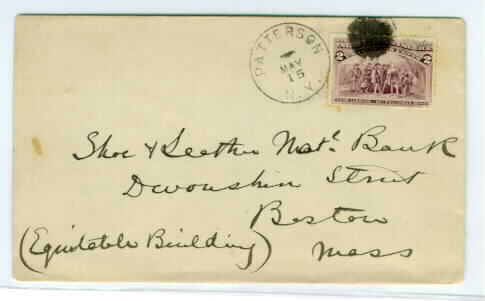 PATTERSON
MAY
15
N.Y.
2 2
Shoe & Leather Natl. Bank
Devonshire Street
Boston
(Equitable Building) Mass